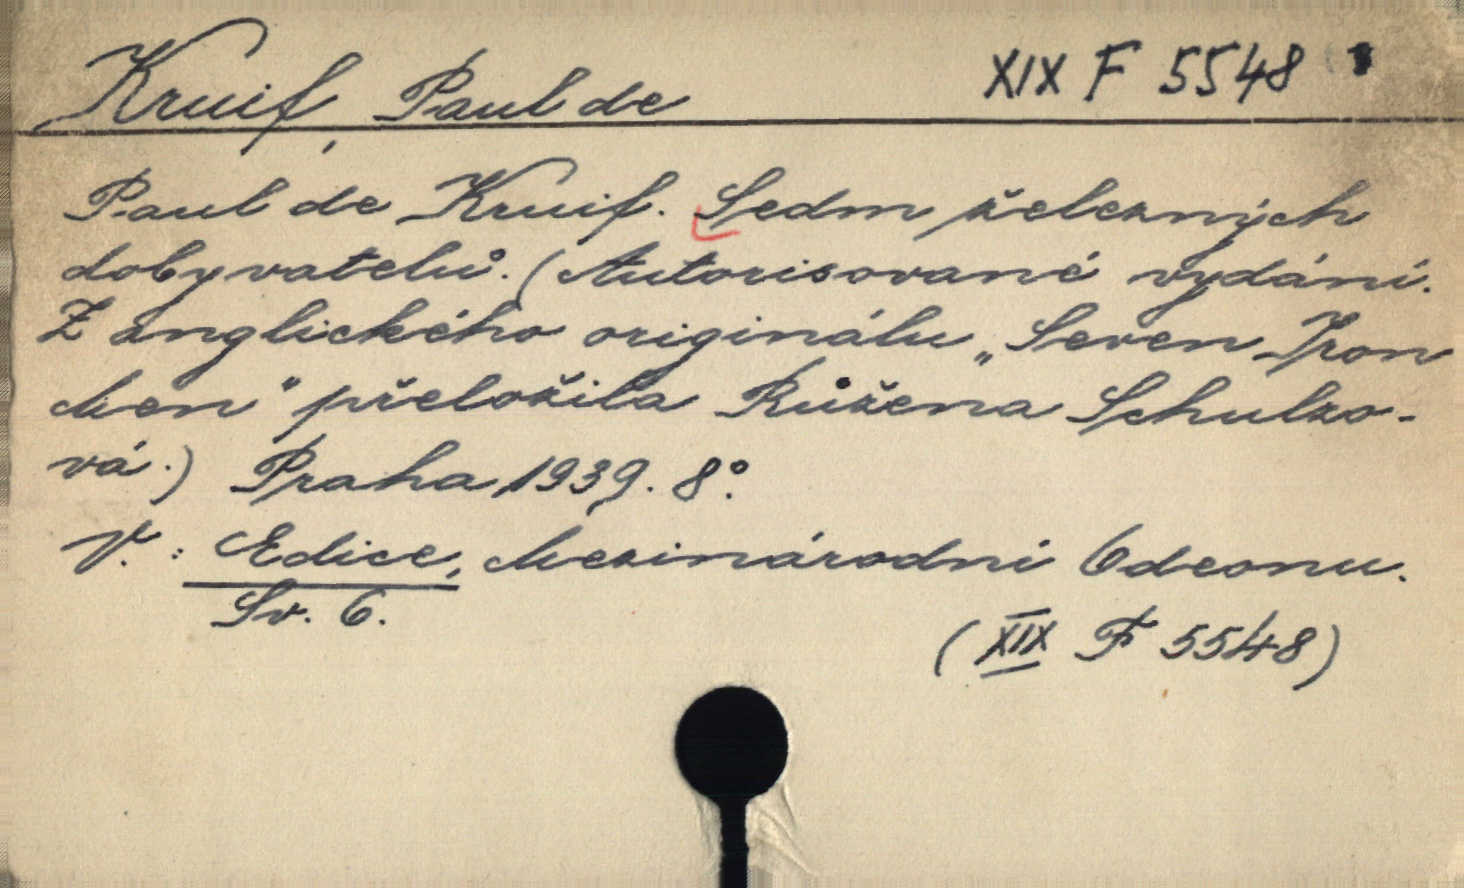 Kruif, Paul de XIX F 5548
Paul de Kruif. Sedm železných
dobyvatelů. (Autorisované vydání.
Z anglického originálu „Seven Iron
Men" přeložila Růžena Schulzo-
vá.) Praha, 1939. 8°.
V.: Edice, Mezinárodní Odeonu.
Sv. 6.
(XIX F 5548)